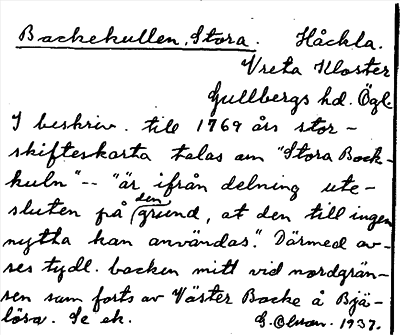 Backekullen, Stora. Håckla.
Vreta Kloster
Gullbergs hd. Ögl.
I beskriv. till 1769 års stor-
skifteskarta talas om "Stora Back-
kuln" -- "är ifrån delning ute-
sluten på den grund, at den till ingen
nytta kan användas". Därmed av-
ses tydl. backen mitt vid nordgrän-
sen som forts av Väster Backe å Bjä-
lösa. Se ek.
G. Olson. 1937.